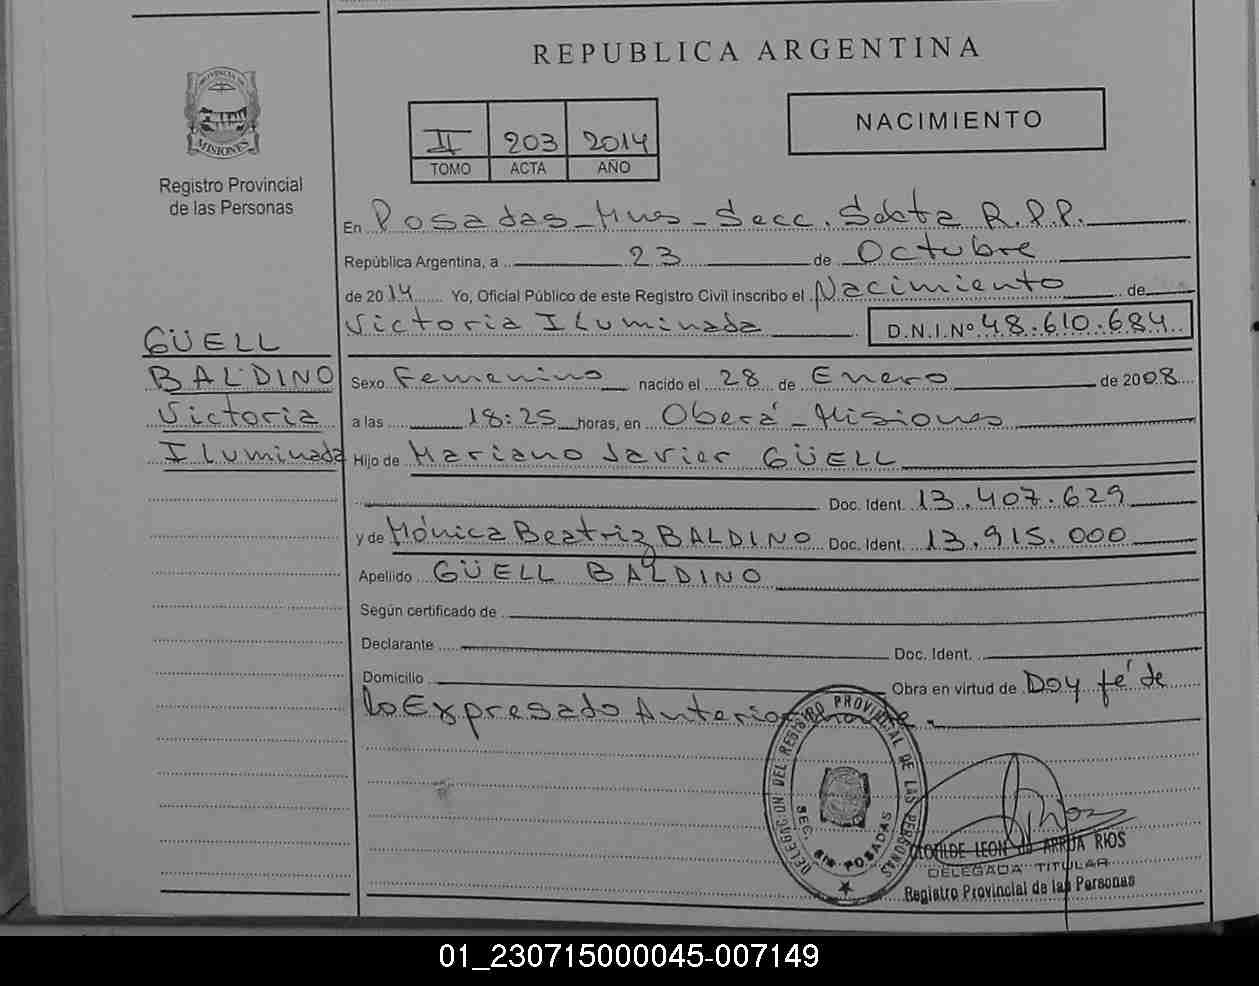 REPUBLICA ARGENTINA
PROVINCIA DE
MISIONES
Registro Provincial
de las Personas
II 203 2014
TOMO ACTA AÑO
NACIMIENTO
En Posadas - Mnes - Secc. Sexta R.P.P.
República Argentina, a 23 de Octubre
de 2014 Yo, Oficial Público de este Registro Civil inscribo el Nacimiento de
Victoria Iluminada D.N.I.Nº 48.610.684
GÜELL
BALDINO
Victoria
Iluminada
Sexo Femenino nacido el 28 de Enero de 2008
a las 18:25 horas, en Oberá - Misiones
Hijo de Mariano Javier GÜELL
Doc. Ident. 13.407.629
y de Mónica Beatriz BALDINO Doc. Ident. 13.915.000
Apellido GÜELL BALDINO
Según certificado de
Declarante Doc. Ident.
Domicilio Obra en virtud de Doy fé de
lo Expresado Anteriormente.
DELEGACION DEL REGISTRO PROVINCIAL DE LAS PERSONAS
SEC. 6ta POSADAS
CLOTILDE LEON de ARRUA RIOS
DELEGADA TITULAR
Registro Provincial de las Personas
01_230715000045-007149